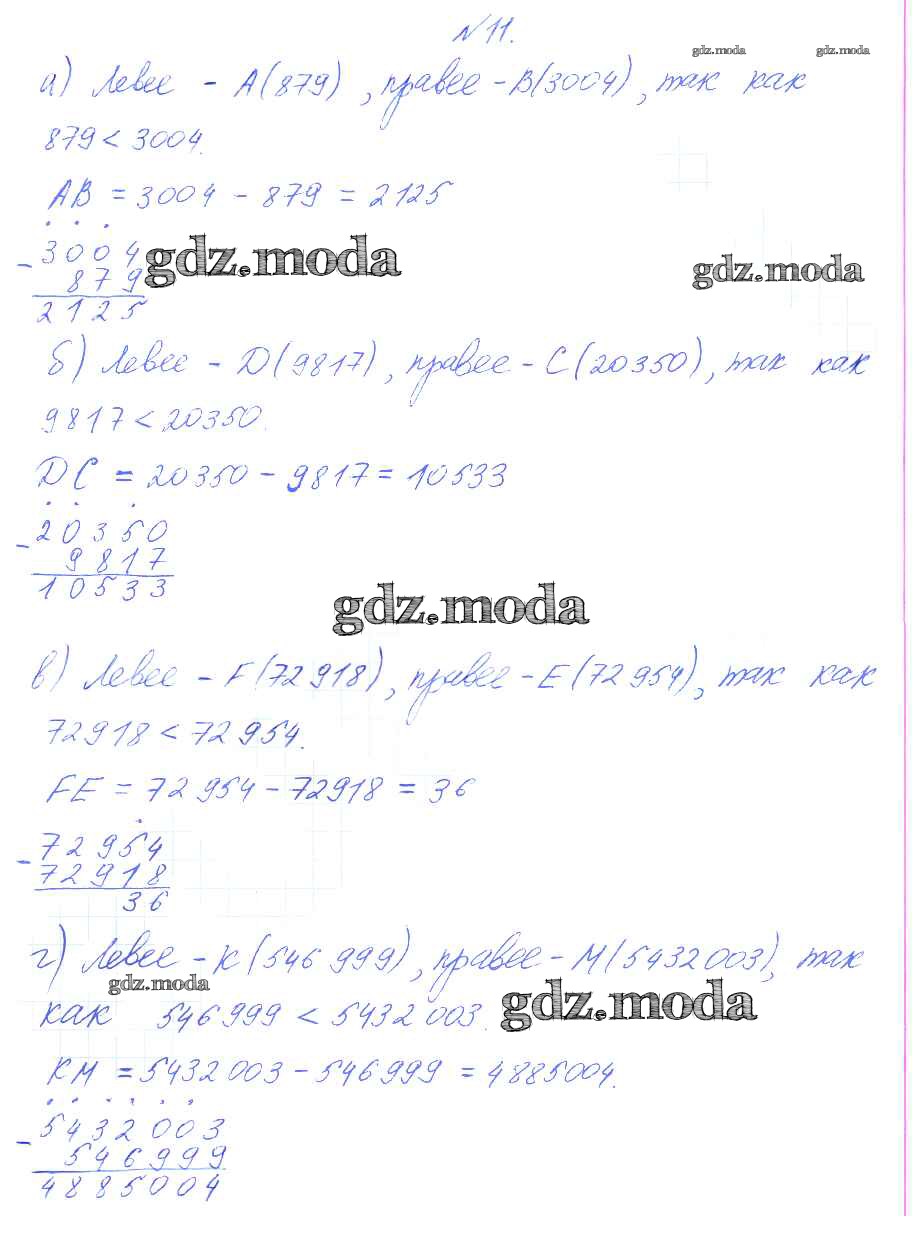 № 11.
gdz.moda gdz.moda
а) Левее - A(879), правее - B(3004), так как
879 < 3004.
AB = 3004 - 879 = 2125
3004
gdz.moda
gdz.moda
- 879
2125
б) Левее - D(9817), правее - C(20350), так как
9817 < 20350.
DC = 20350 - 9817 = 10533
20350
- 9817
10533
gdz.moda
в) Левее - F(72918), правее - E(72954), так как
72918 < 72954.
FE = 72954 - 72918 = 36
72954
- 72918
36
г) Левее - K(546999), правее - M(5432003), так
gdz.moda
как 546999 < 5432003.
gdz.moda
KM = 5432003 - 546999 = 4885004.
5432003
- 546999
4885004